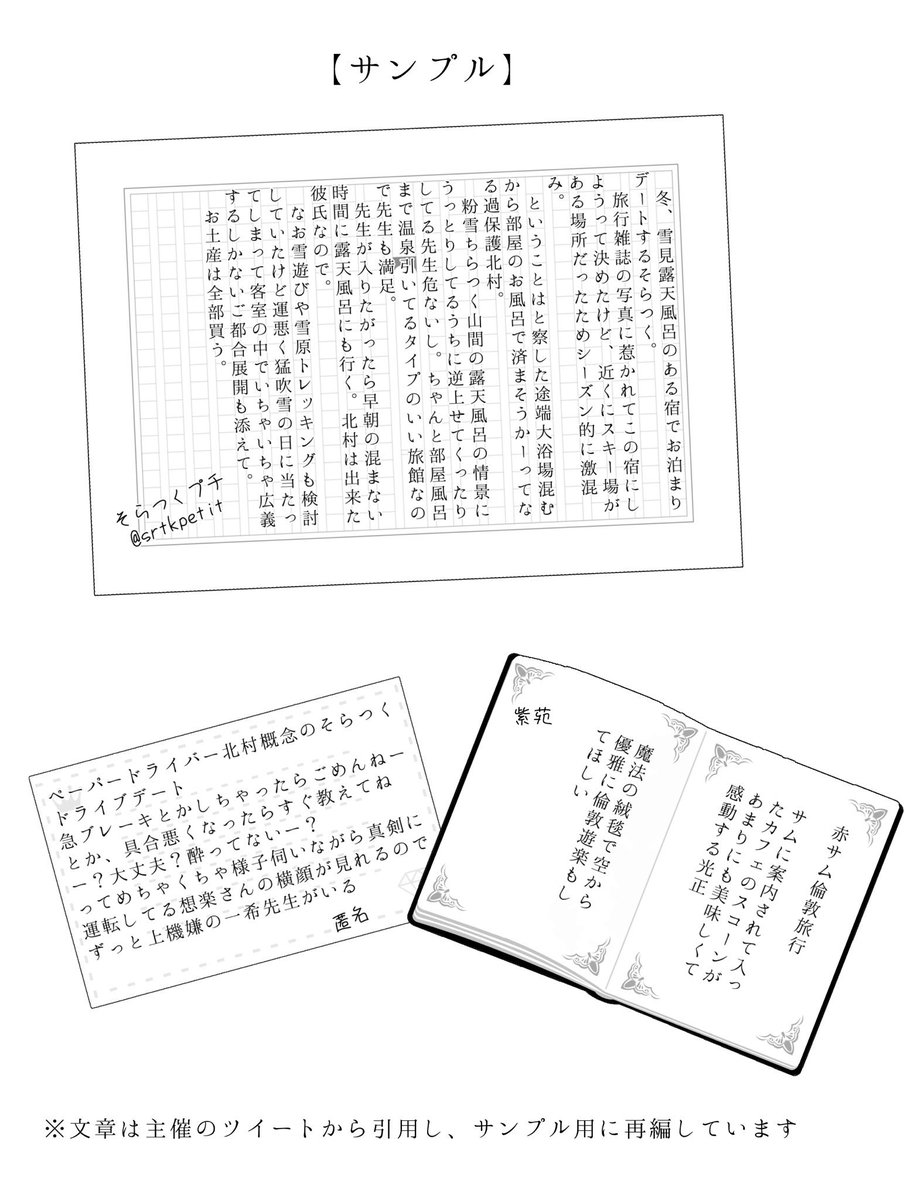 【サンプル】
冬、雪見露天風呂のある宿でお泊まり
デートするそらつく。
旅行雑誌の写真に惹かれてこの宿にし
ようって決めたけど、近くにスキー場が
ある場所だったためシーズン的に激混
み。
ということはと察した途端大浴場混む
から部屋のお風呂で済まそうかーってな
る過保護北村。
粉雪ちらつく山間の露天風呂の情景に
うっとりしてるうちに逆上せてくったり
してる先生危ないし。ちゃんと部屋風呂
まで温泉引いてるタイプのいい旅館なの
で先生も満足。
先生が入りたがったら早朝の混まない
時間に露天風呂にも行く。北村は出来た
彼氏なので。
なお雪遊びや雪原トレッキングも検討
していたけど運悪く猛吹雪の日に当たっ
てしまって客室の中でいちゃいちゃ広義
するしかないご都合展開も添えて。
お土産は全部買う。
そらつくプチ
@srtkpetit
ペーパードライバー北村概念のそらつく
ドライブデート
急ブレーキとかしちゃったらごめんねー
とか、具合悪くなったらすぐ教えてね
ー？大丈夫？酔ってないー？
ってめちゃくちゃ様子伺いながら真剣に
運転してる想楽さんの横顔が見れるので
ずっと上機嫌の一希先生がいる
匿名
赤サム倫敦旅行
サムに案内されて入っ
たカフェのスコーンが
あまりにも美味しくて
感動する光正
魔法の絨毯で空から
優雅に倫敦遊楽もし
てほしい
紫苑
※文章は主催のツイートから引用し、サンプル用に再編しています